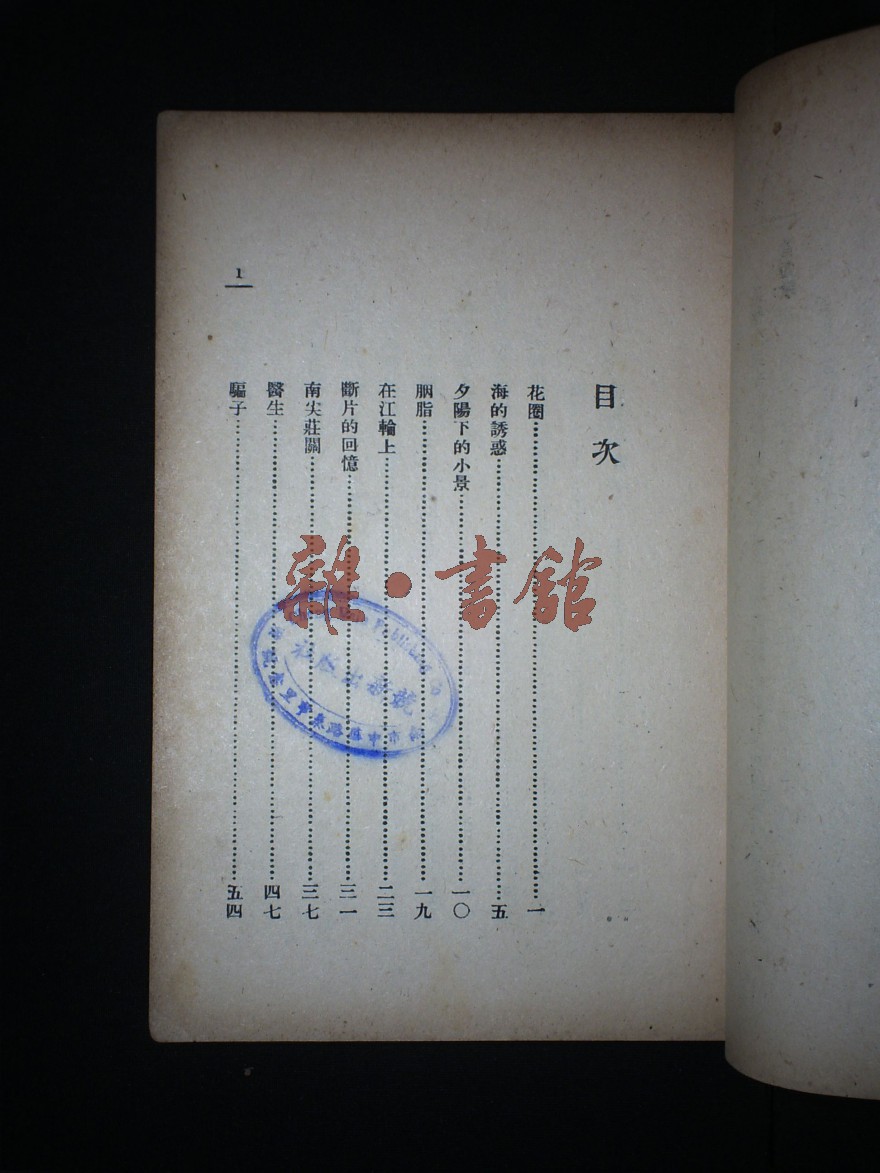 目次
花圈……一
海的誘惑……五
夕陽下的小景……一〇
胭脂……一九
在江輪上……二三
斷片的回憶……三一
南尖莊關……三七
醫生……四七
騙子……五四
1
雜·書館